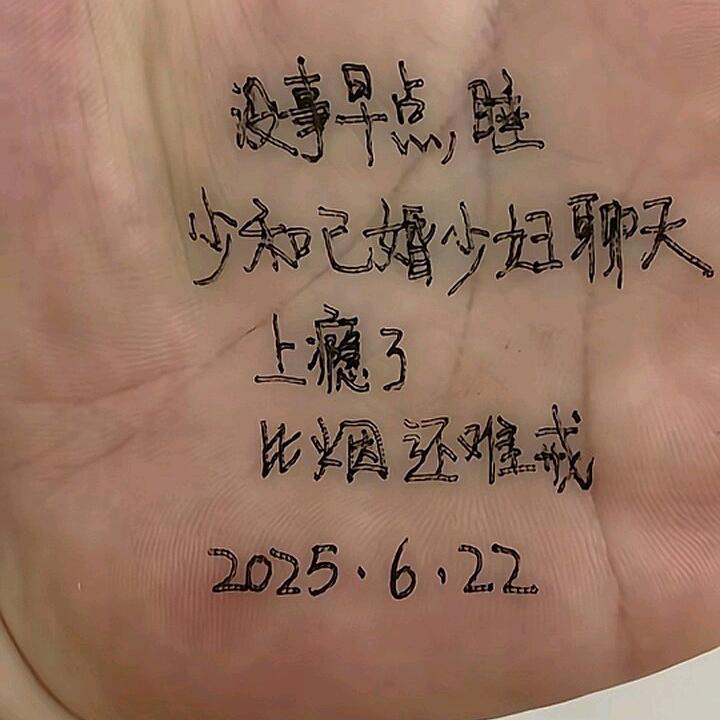 没事早点睡
少和已婚少妇聊天
上瘾了
比烟还难戒
2025.6.22